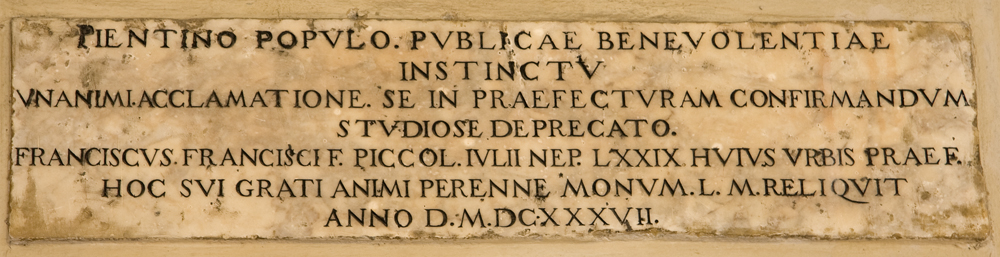 PIENTINO POPVLO. PVBLICAE BENEVOLENTIAE
INSTINCTV
VNANIMI.ACCLAMATIONE. SE IN PRAEFECTVRAM CONFIRMANDVM
STVDIOSE DEPRECATO.
FRANCISCVS.FRANCISCI F. PICCOL.IVLII NEP. LXXIX HVIVS VRBIS PRAEF.
HOC SVI GRATI ANIMI PERENNE MONVM.L. M.RELIQVIT
ANNO D.M.DCXXXVII.